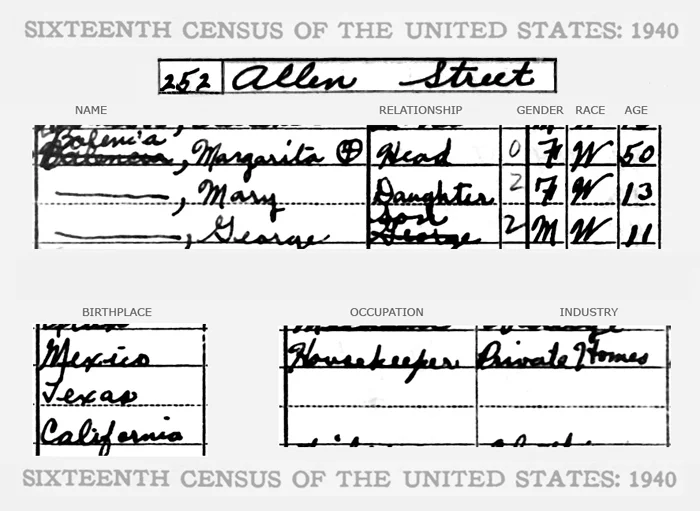 SIXTEENTH CENSUS OF THE UNITED STATES: 1940
252 Allen Street
NAME RELATIONSHIP GENDER RACE AGE
Balencia
, Margarita Head 0 F W 50
, Mary Daughter 2 F W 13
Son
, George George 2 M W 11
BIRTHPLACE OCCUPATION INDUSTRY
Mexico Housekeeper Private Homes
Texas
California
SIXTEENTH CENSUS OF THE UNITED STATES: 1940